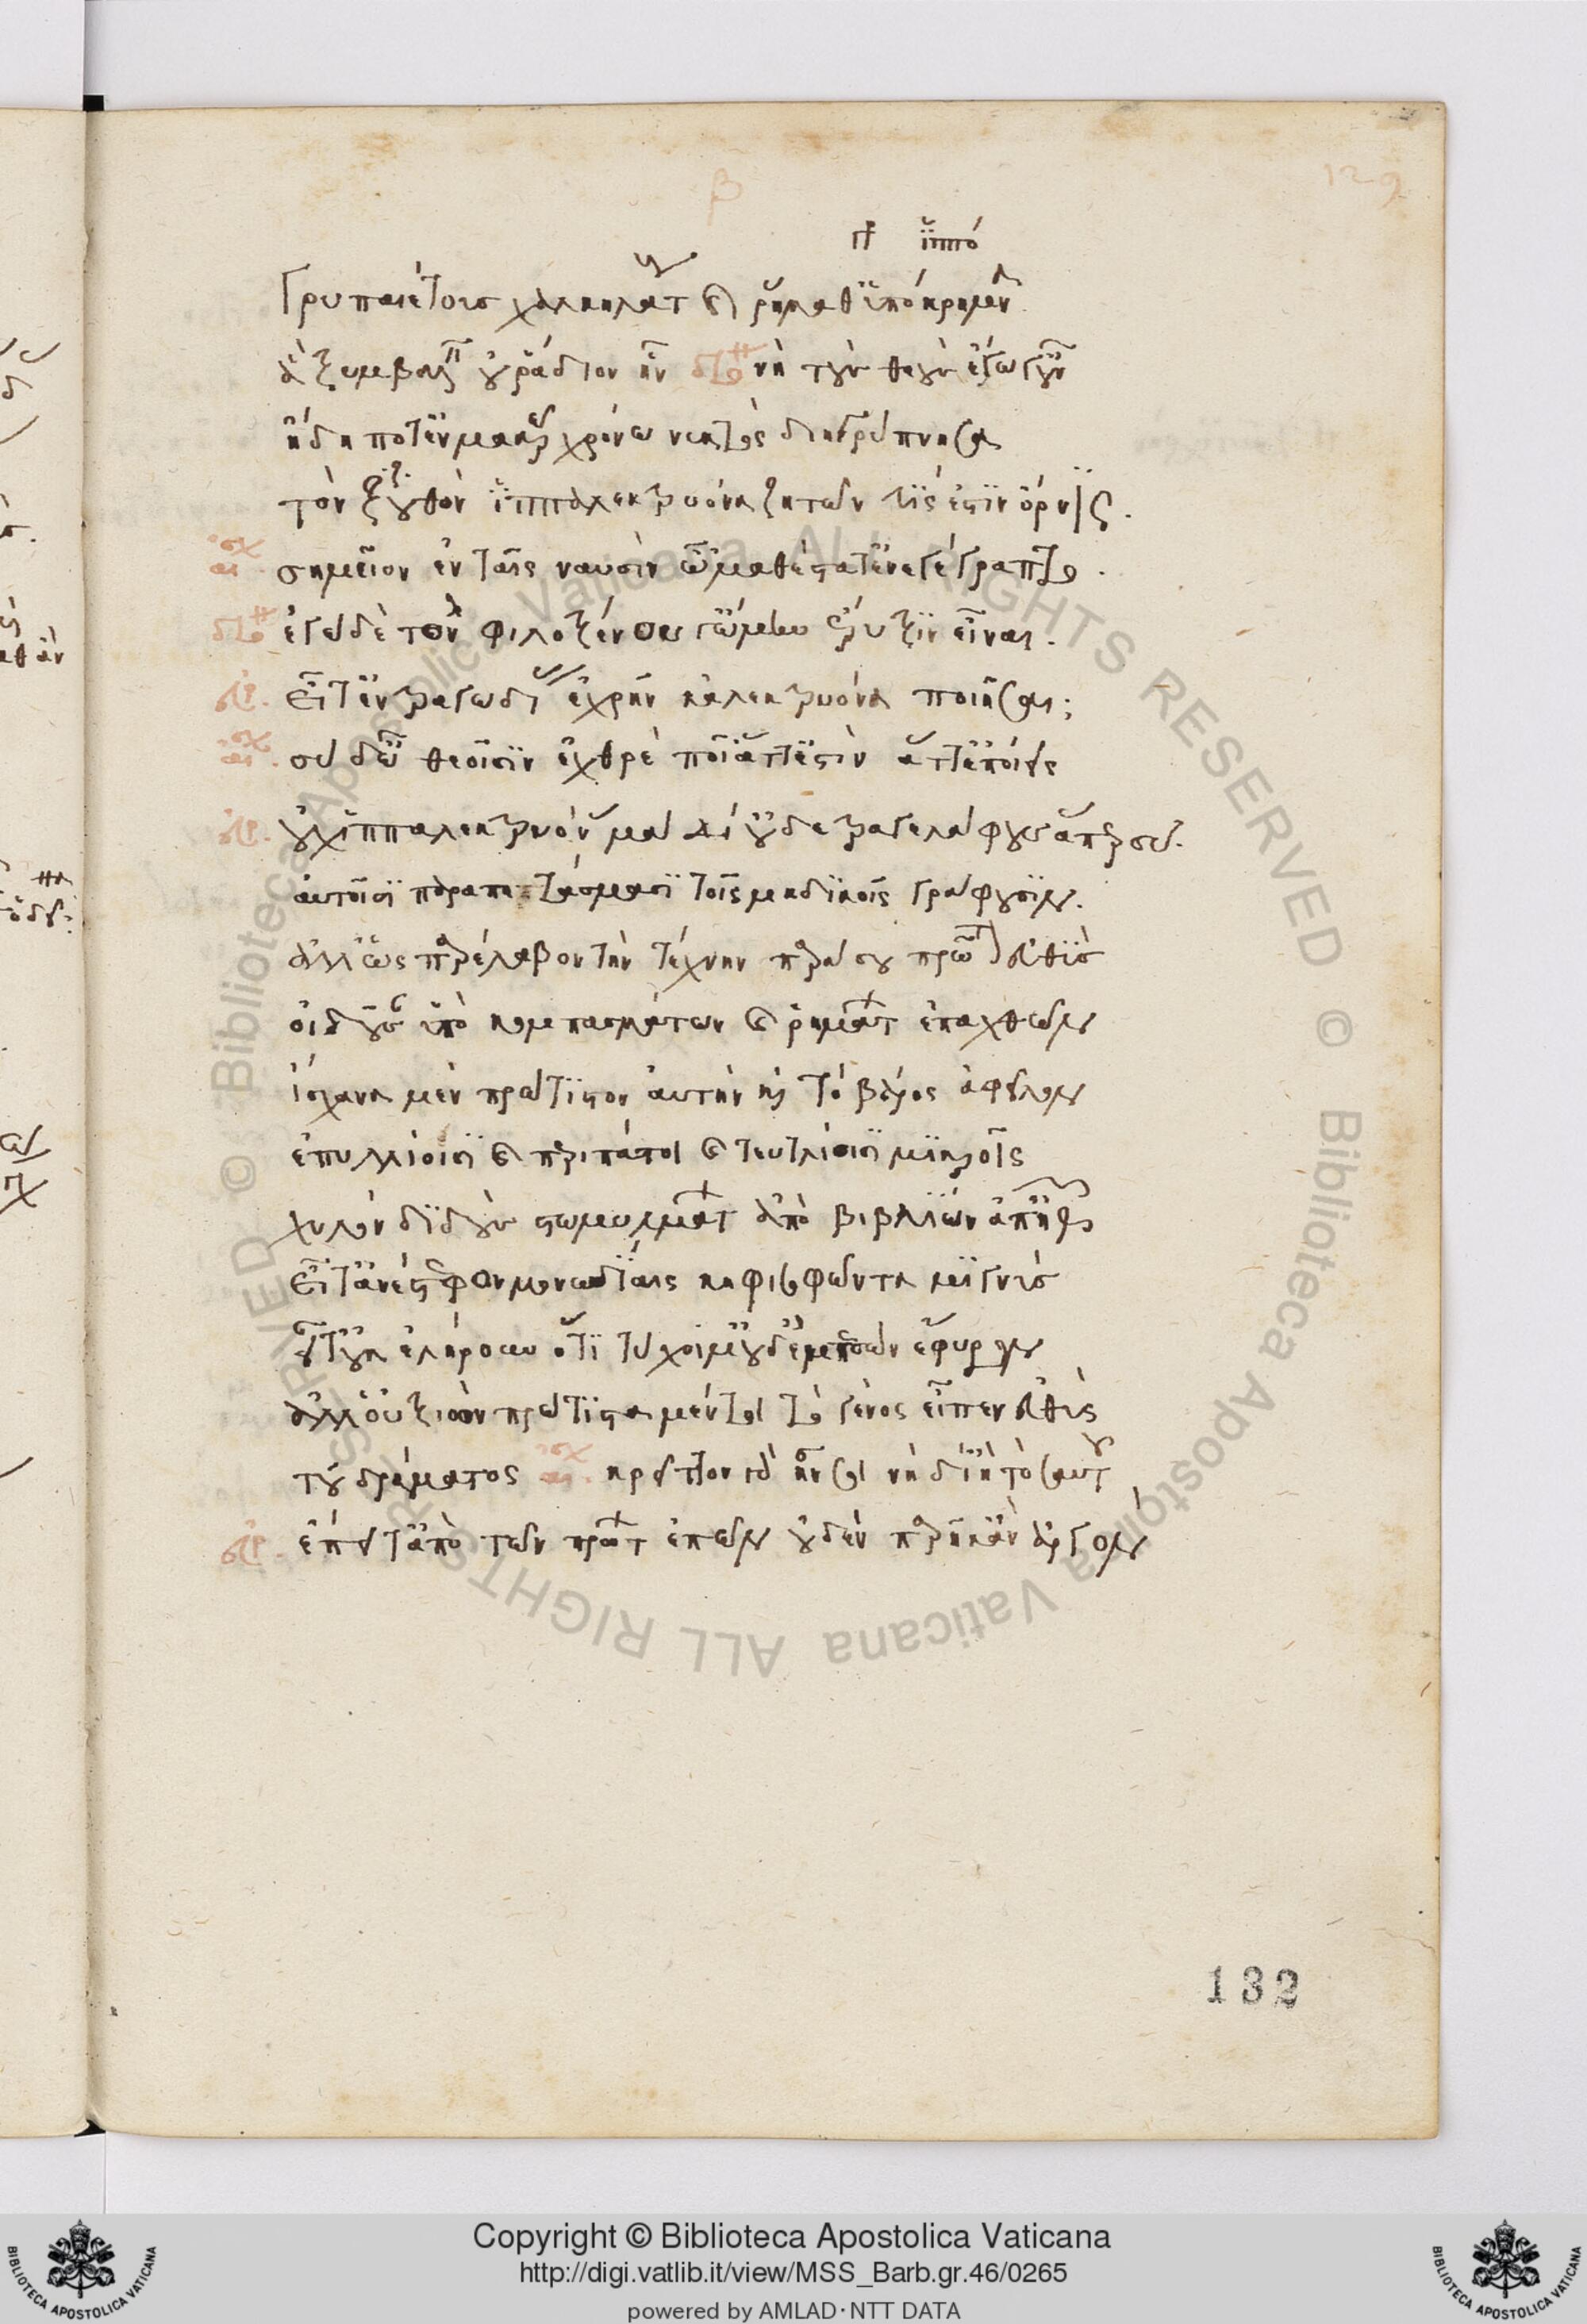 β
129
γρ ἱππό
Γρυπαιέτους χαλκηλάτους καὶ ῥήμαθ' ἱππόκρημνα
ἃ ξυμβαλεῖν οὐ ῥάδιον ἦν διο νὴ τοὺς θεοὺς ἐγὼ γοῦν
ἤδη ποτ' ἐν μακρῷ χρόνω νυκτὸς διηγρύπνησα
τὸν ξουθὸν ἱππαλεκτρυόνα ζητῶν τίς ἐστιν ὄρνις.
αισχ. σημεῖον ἐν ταῖς ναυσὶν ὦ μαθέστατ' ἐνεγέγραπτο.
διο ἐγὼ δὲ τὸν φιλοξένου γ' ὤμην ἔρυξιν εἶναι.
ευρ. εἶτ' ἐν τραγωδίαις ἐχρῆν κἀλεκτρυόνα ποιῆσαι;
αισχ. σὺ δ' ὦ θεοῖσιν ἐχθρὲ ποῖ' ἄττ' ἐστὶν ἅττ' ἐποίεις
ευρ. οὐχ ἱππαλεκτρυόνας μὰ δί' οὐδὲ τραγελάφους ἅπερ σύ.
ἃν τοῖσι παραπετάσμασι τοῖς μηδικοῖς γράφουσιν.
ἀλλ' ὡς παρέλαβον τὴν τέχνην παρὰ σοῦ πρῶτον εὐθὺς
οἰδοῦσαν ὑπὸ κομπασμάτων καὶ ῥημάτων ἐπαχθῶν
ἴσχανα μὲν πρώτιστον αὐτὴν καὶ τὸ βάρος ἀφεῖλον
ἐπυλλίοισι καὶ περιπάτοις καὶ τευτλίοισι μικροῖς
χυλὸν διδοὺς στωμυλμάτων ἀπὸ βιβλίων ἀπηθῶν
εἶτ' ἀνέτρεφον μονωδίαις κηφισοφῶντα μιγνὺς
εἶτ' οὐκ ἐλήρουν ὅτι τύχοιμ' οὐδ' ἐμπεσὼν ἔφυρον
ἀλλ' οὑξιὼν πρώτιστα μέν τοι τὸ γένος εἶπεν εὐθὺς
τοῦ δράματος αισχ. κρεῖττον γὰρ ἦν σοι νὴ δί' ἢ τὸ σαυτοῦ
ευρ. ἔπειτ' ἀπὸ τῶν πρώτων ἐπῶν οὐδὲν παρῆκ' ἂν ἀργὸν
132
Copyright © Biblioteca Apostolica Vaticana
http://digi.vatlib.it/view/MSS_Barb.gr.46/0265
powered by AMLAD·NTT DATA